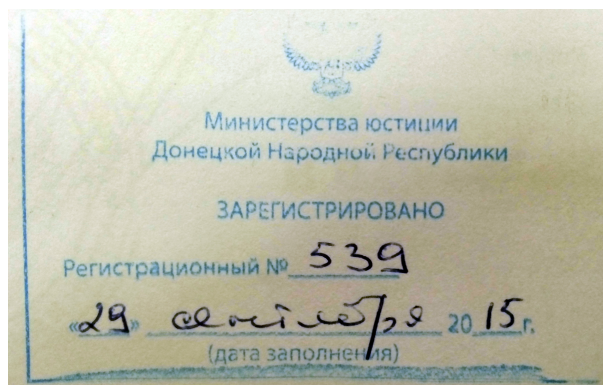 Министерства юстиции
Донецкой Народной Республики
ЗАРЕГИСТРИРОВАНО
Регистрационный № 539
«29» сентября 2015 г.
(дата заполнения)